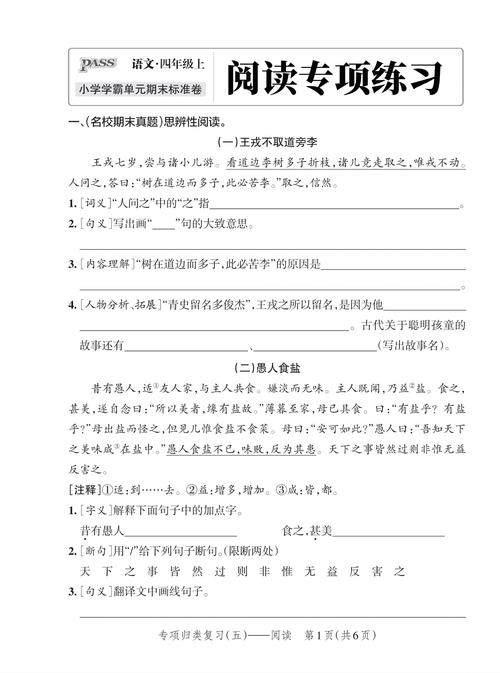 PASS 语文·四年级上
小学学霸单元期末标准卷
阅读专项练习
一、(名校期末真题)思辨性阅读。
(一)王戎不取道旁李
王戎七岁,尝与诸小儿游。看道边李树多子折枝,诸儿竞走取之,唯戎不动。
人问之,答曰:“树在道边而多子,此必苦李。”取之,信然。
1.[词义]“人问之”中的“之”指____。
2.[句义]写出画“____”句的大致意思。
3.[内容理解]“树在道边而多子,此必苦李”的原因是____
____。
4.[人物分析、拓展]“青史留名多俊杰”,王戎之所以留名,是因为他____
____。古代关于聪明孩童的
故事还有____、____(写出故事名)。
(二)愚人食盐
昔有愚人,适①友人家,与主人共食。嫌淡而无味。主人既闻,乃益②盐。食之,
甚美,遂自念曰:“所以美者,缘有盐故。”薄暮至家,母已具食。曰:“有盐乎?有盐
乎?”母出盐而怪之,但见儿惟食盐不食菜。母曰:“安可如此?”愚人曰:“吾知天下
之美味咸③在盐中。”愚人食盐不已,味败,反为其患。天下之事皆然过则非惟无益
反害之。
[注释]①适:到……去。②益:增多,增加。③咸:皆,都。
1.[字义]解释下面句子中的加点字。
昔有愚人____ 食之,甚美____
2.[断句]用“/”给下列句子断句。(限断两处)
天 下 之 事 皆 然 过 则 非 惟 无 益 反 害 之
3.[句义]翻译文中画线句子。
专项归类复习(五)——阅读 第1页(共6页)